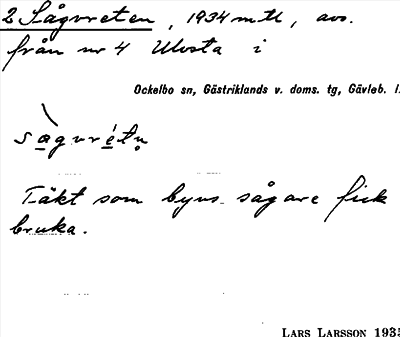 2 Sågvreten, 1934 mtl, avs.
från nr 4 Ulvsta i
Ockelbo sn, Gästriklands v. doms. tg, Gävleb. l.
sàgvrétṇ
Täkt som byns sågare fick
bruka.
LARS LARSSON 1935